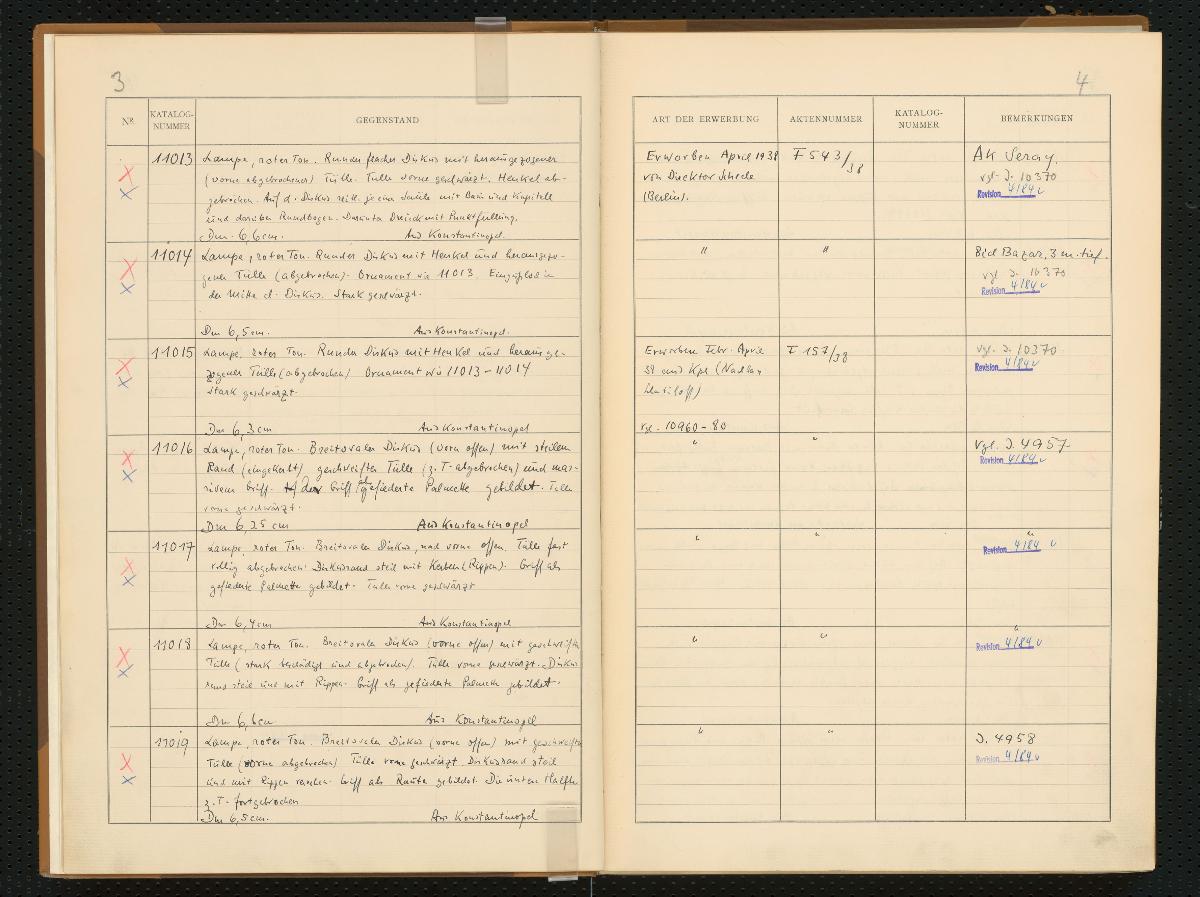 3
Nr.
KATALOG-
NUMMER
GEGENSTAND
11013
Lampe, roter Ton. Runder flacher Diskus mit herausgezogener
(vorne abgebrochener) Tülle. Tülle vorne geschwärzt. Henkel ab-
gebrochen. Auf d. Diskus je eine Säule mit Basis und Kapitell
und darüber Rundbogen. Darunter Dreieck mit Punktfüllung.
Dm. 6,6 cm. Aus Konstantinopel.
11014
Lampe, roter Ton. Runder Diskus mit Henkel und herausgezo-
gener Tülle (abgebrochen). Ornament wie 11013. Eingußloch in
der Mitte d. Diskus. Stark geschwärzt.
Dm 6,5 cm. Aus Konstantinopel.
11015
Lampe, roter Ton. Runder Diskus mit Henkel und herausge-
zogener Tülle (abgebrochen) Ornament wie 11013 - 11014
Stark geschwärzt.
Dm 6,3 cm Aus Konstantinopel
11016
Lampe, roter Ton. Breitovaler Diskus (vorn offen) mit steilem
Rand (eingekerbt) geschweifter Tülle (z. T. abgebrochen) und mas-
sivem Griff. Der Griff als gefiederte Palmette gebildet. Tülle
vorne geschwärzt.
Dm 6,25 cm Aus Konstantinopel
11017
Lampe, roter Ton. Breitovaler Diskus, nach vorne offen. Tülle fast
völlig abgebrochen. Diskusrand steil mit Kerben (Rippen). Griff als
gefiederte Palmette gebildet. Tülle vorne geschwärzt
Dm 6,4 cm Aus Konstantinopel
11018
Lampe, roter Ton. Breitovaler Diskus (vorne offen) mit geschweifter
Tülle (stark beschädigt und abgebrochen). Tülle vorne geschwärzt. Diskus
rand steil und mit Rippen. Griff als gefiederte Palmette gebildet.
Dm 6,6 cm Aus Konstantinopel
11019
Lampe, roter Ton. Breitovaler Diskus (vorne offen) mit geschweifter
Tülle (vorne abgebrochen) Tülle vorne geschwärzt. Diskusrand steil
und mit Rippen versehen. Griff als Raute gebildet. Die untere Hälfte
z. T. fortgebrochen
Dm 6,5 cm. Aus Konstantinopel
4
ART DER ERWERBUNG
AKTENNUMMER
KATALOG-
NUMMER
BEMERKUNGEN
Erworben April 1938
von Direktor Schede
(Berlin).
I 543/38
Ak Seray.
vgl. J. 10370
Revision 4/84
"
"
Bed Bazar, 3 m. tief.
vgl. J. 10370
Revision 4/84
Erworben Febr. April
38 aus Kpl (Nadlan
I 157/38
vgl. J. 10370
Revision 4/84
vgl. 10960-80
"
"
vgl. J. 4957
Revision 4/84
"
"
"
Revision 4/84
"
"
"
Revision 4/84
"
"
J. 4958
Revision 4/84